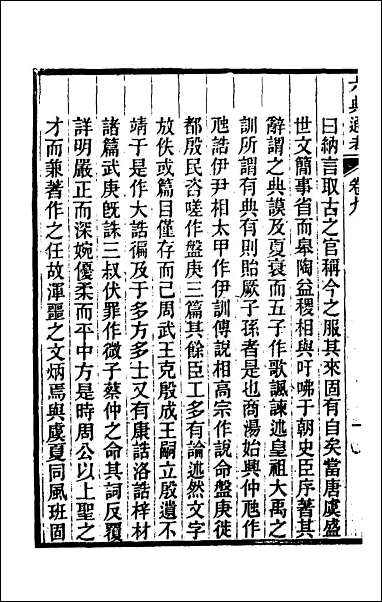 六典通考 卷九
曰納言取古之官稱今之服其來固有自矣當唐虞盛
世文簡事省而皋陶益稷相與吁咈于朝史臣序著其
辭謂之典謨及夏衰而五子作歌諷諫述皇祖大禹之
訓所謂有典有則貽厥子孫者是也商湯始興仲虺作
虺誥伊尹相太甲作伊訓傅說相高宗作說命盤庚徙
都殷民咨嗟作盤庚三篇其餘臣工多有論述然文字
放佚或篇目僅存而已周武王克殷成王嗣立殷遺不
靖于是作大誥徧及于多方多士又有康誥洛誥梓材
諸篇武庚旣誅三叔伏罪作微子蔡仲之命其詞反覆
詳明嚴正而深婉優柔而平中方是時周公以上聖之
才而兼著作之任故渾噩之文炳焉與虞夏同風班固